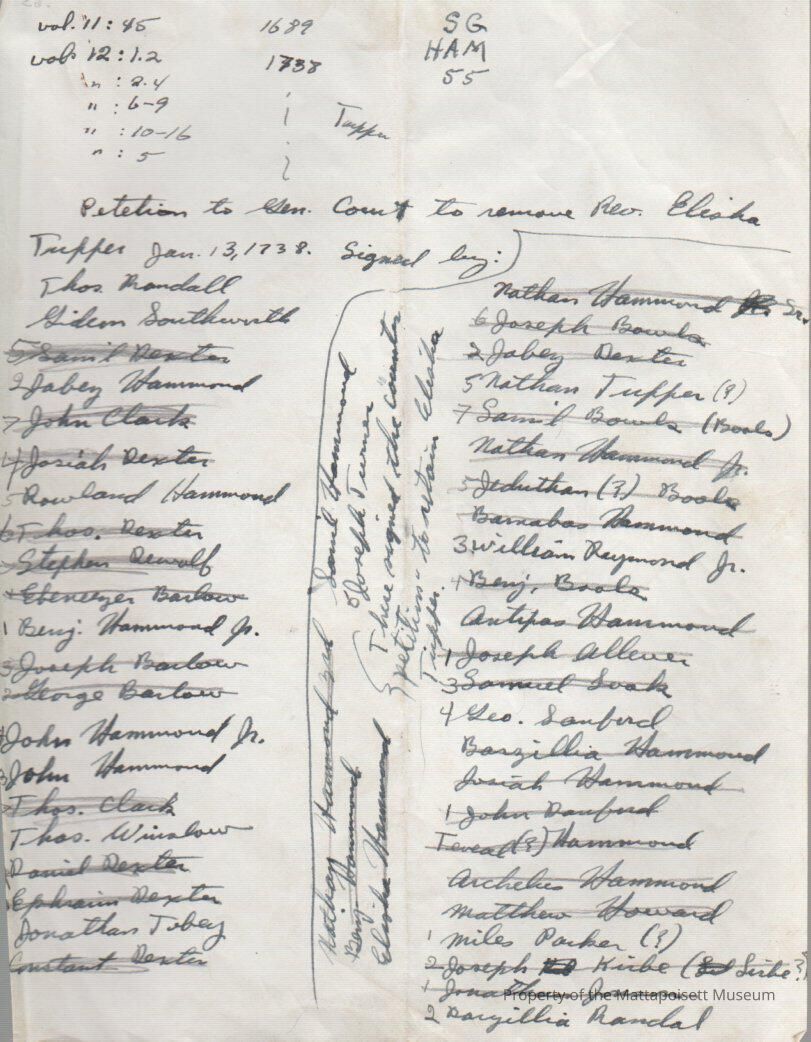 vol. 11: 45 1689
vol. 12: 1.2 1738
" : 2.4
" : 6-9
" : 10-16
" : 5
Tupper
SG
HAM
55
Petetion to Gen. Court to remove Rev. Elisha
Tupper Jan. 13, 1738. Signed by:
Thos. Randall
Gideon Southworth
5 Saml Dexter
2 Jabey Hammond
7 John Clark
4 Josiah Dexter
5 Rowland Hammond
6 Thos. Dexter
Stephen Dewolf
Ebeneezer Barlow
1 Benj. Hammond Jr.
3 Joseph Barlow
2 George Barlow
John Hammond Jr.
3 John Hammond
Thos. Clark
Thos. Winslow
Daniel Dexter
Ephraim Dexter
Jonathan Tobey
Constant Dexter
Nathan Hammond 3rd
Benj. Hammond
Elisha Hammond
Saml Hammond
Joseph Turner
These signed the "counter
petition" to retain Elisha
Tupper.
Nathan Hammond Sr.
6 Joseph Bowls
2 Jabey Dexter
5 Nathan Tupper (?)
7 Samil Bowls (Bools)
Nathan Hammond Jr.
3 Jeduthan (?) Bools
Barnabas Hammond
3 William Raymond Jr.
4 Benj. Bools
Antipas Hammond
1 Joseph Allever
3 Samuel
4 Geo. Sanford
Barzillia Hammond
Josiah Hammond
1 John Danford
(?) Hammond
Archelus Hammond
Matthew Howard
1 Miles Parker (?)
2 Joseph Kirbe (Sirbe?)
1
2 Barzillia Randal
Property of the Mattapoisett Museum